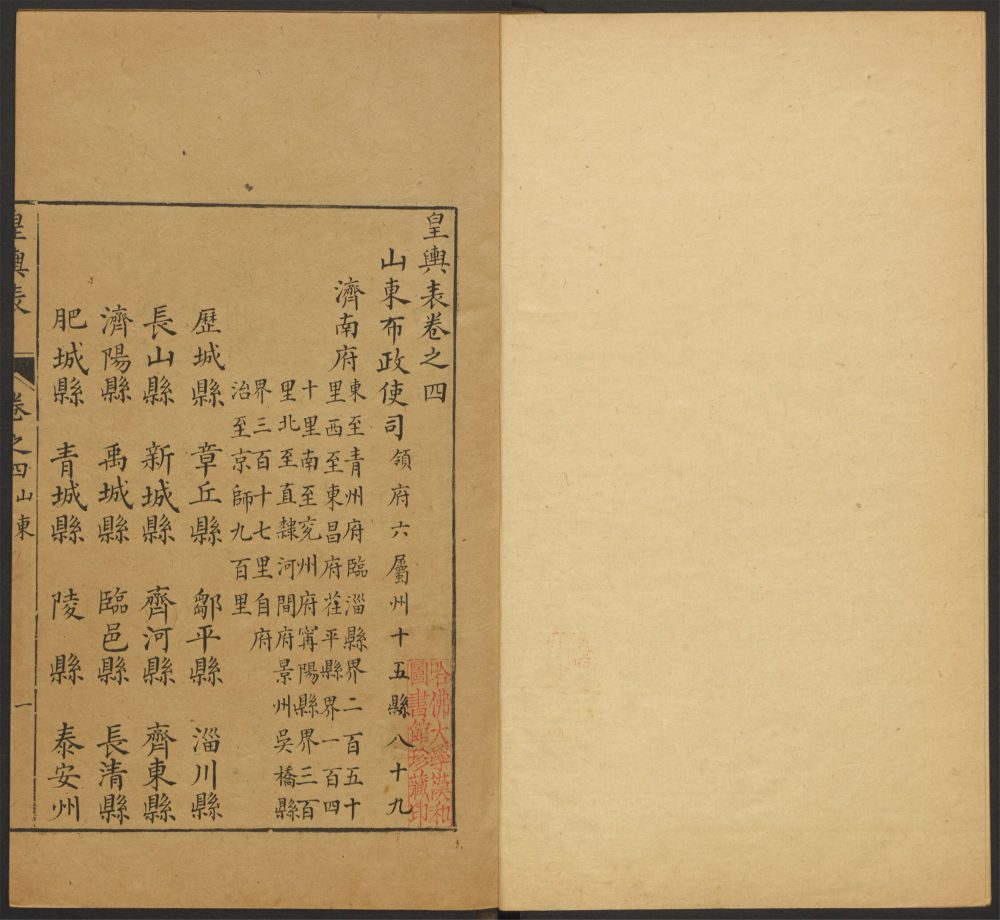 皇輿表卷之四
山東布政使司領府六屬州十五縣八十九
濟南府東至青州府臨淄縣界二百五十
里西至東昌府茌平縣界一百四
十里南至兖州府寗陽縣界三百
里北至直隸河間府景州吳橋縣
界三百十七里自府
治至京師九百里
歷城縣 章丘縣 鄒平縣 淄川縣
長山縣 新城縣 齊河縣 齊東縣
濟陽縣 禹城縣 臨邑縣 長清縣
肥城縣 青城縣 陵縣 泰安州
皇輿表 卷之四 山東 一
哈佛大學漢和
圖書館珍藏印